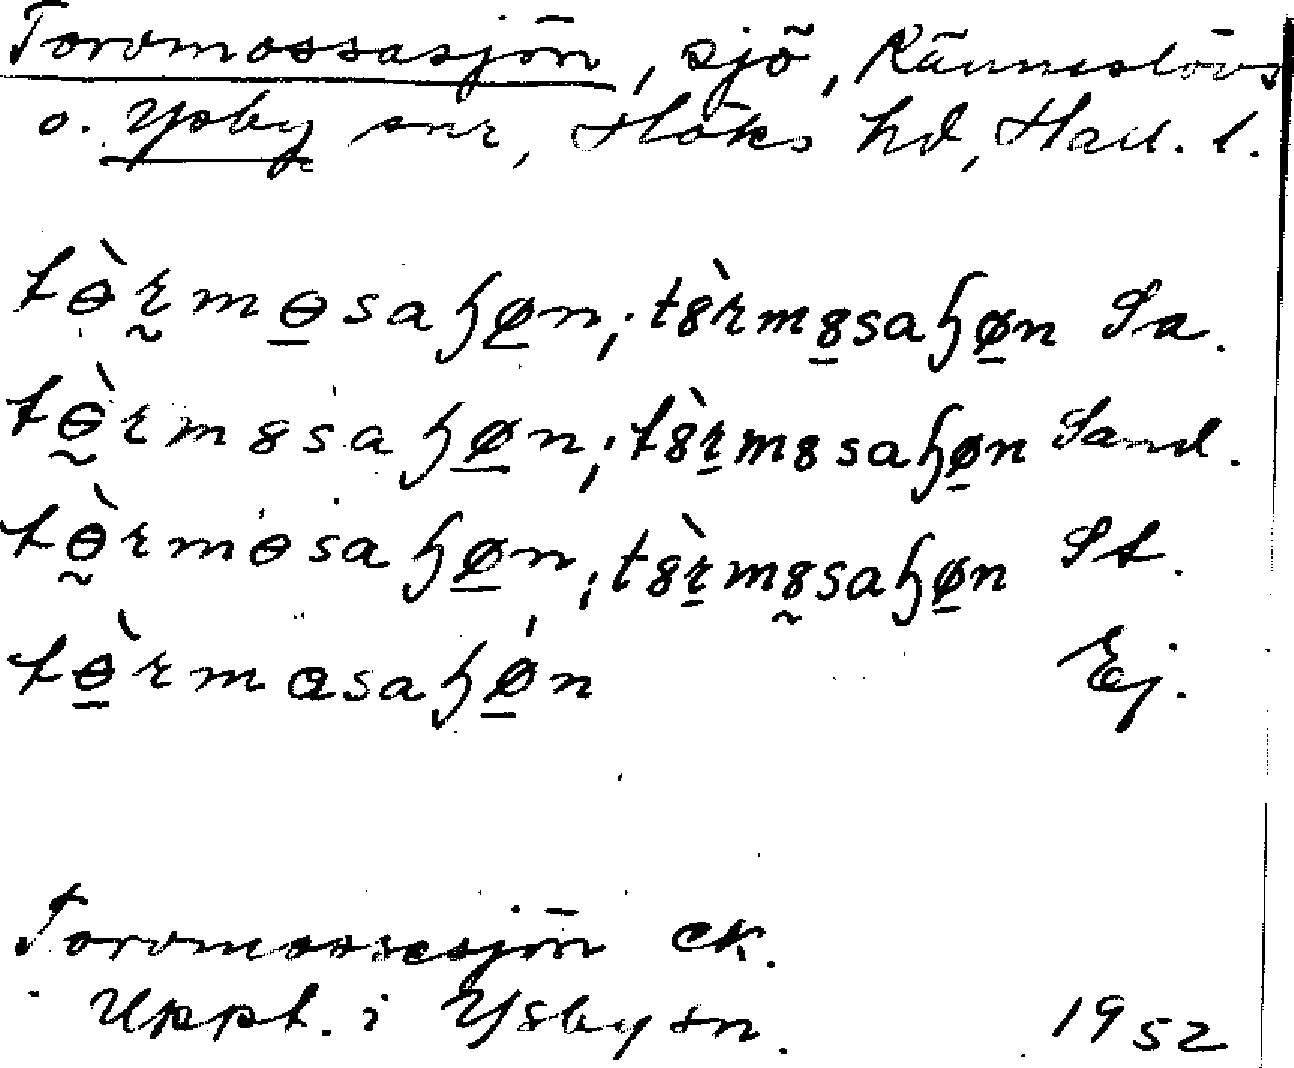 Torvmossasjön, sjö, Ränneslövs
o. Ysby snr, Höks hd, Hall. l.
tɵ̀rmɵsaɧøn; tȣ̀rmȣsaɧøn Sa.
tɵ̀rmȣsaɧøn; tȣ̀rmȣsaɧøn Sand.
tɵ̀rmɵsaɧøn; tȣ̀rmȣsaɧøn St.
tɵ̀rmɑsaɧøn Ej.
Torvmossesjön ek.
Uppt. i Ysby sn. 1952